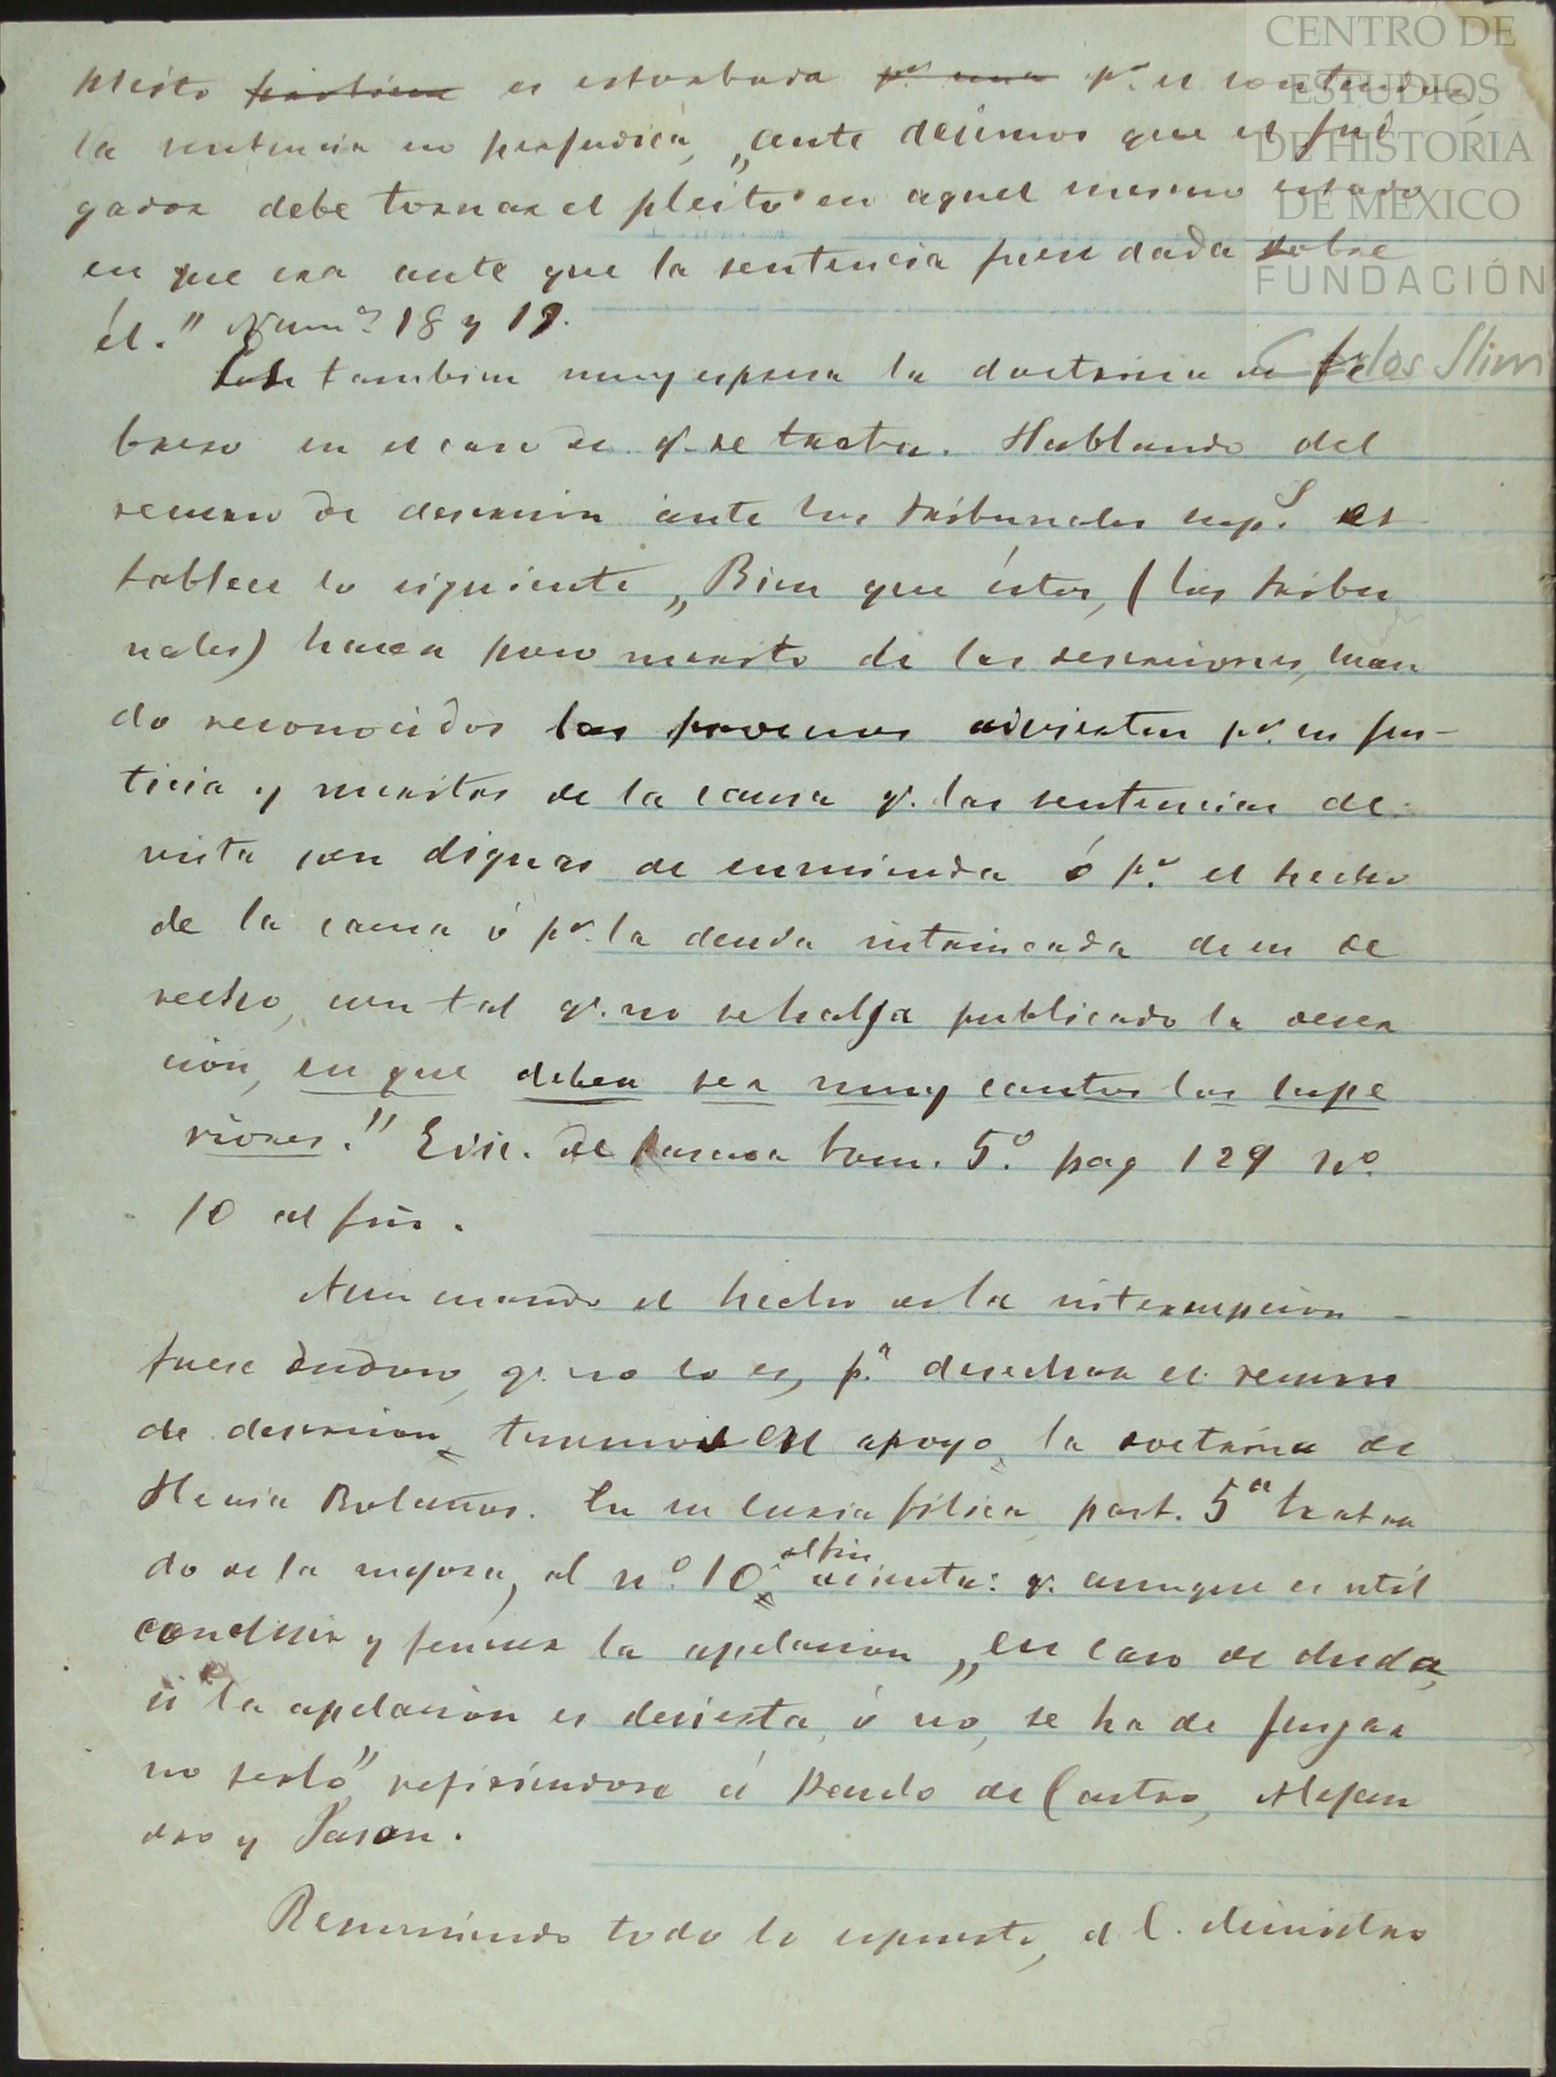 CENTRO DE
ESTUDIOS
DE HISTORIA
DE MEXICO
FUNDACIÓN
Carlos Slim
pleito es estorbada pr. una pr. el contendor
la sentencia no perjudica, „ante decimos que el juz
gador debe tornar el pleito en aquel mesmo estado
en que era ante que la sentencia fuese dada sobre
él." Numos 18 y 19.
Es tambien muy espresa la doctrina de Fe
brero en el caso de q. se trata. Hablando del
recurso de desercion ante los tribunales sups. es
tablece lo siguiente „Bien que éstos, (los tribu
nales) hacen poco merito de las deserciones, cuan
do reconocidos los procesos advierten pr. su jus-
ticia y meritos de la causa q. las sentencias de
vista son dignas de enmienda ó pr. el hecho
de la causa ó pr. la duda intrincada de su de
recho, con tal q. no se halla publicado la deser
cion, en que deben ser muy cautos los supe
riores." Edic. de tom. 5.º pag 129 nº.
10 al fin.
Aun cuando el hecho de la interrupcion -
fuese dudoso, q. no lo es, p.a desechar el recurso
de desercion, tenemos en apoyo, la doctrina de
Hevia Bolaños. En su Curia filica part. 5a tratan
do de la mejora, al nº. 10. al fin asienta: q. aunque es util
concluir y fenecer la apelacion „en caso de duda,
si la apelacion es decierta, ó no, se ha de juzgar
no serlo" refiriendose á Paulo de Castro, Alejan
dro y Jason.
Resumiendo todo lo espuesto, el C. Ministro